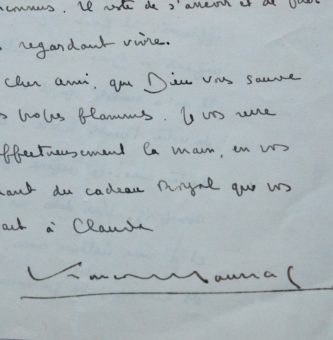 connus. Il reste de s'asseoir et de
regardant vivre.
cher ami, que Dieu vous sauve
propres flammes. Je vous serre
affectueusement la main, en vos
du cadeau Royal que vos
à Claude
François Mauriac